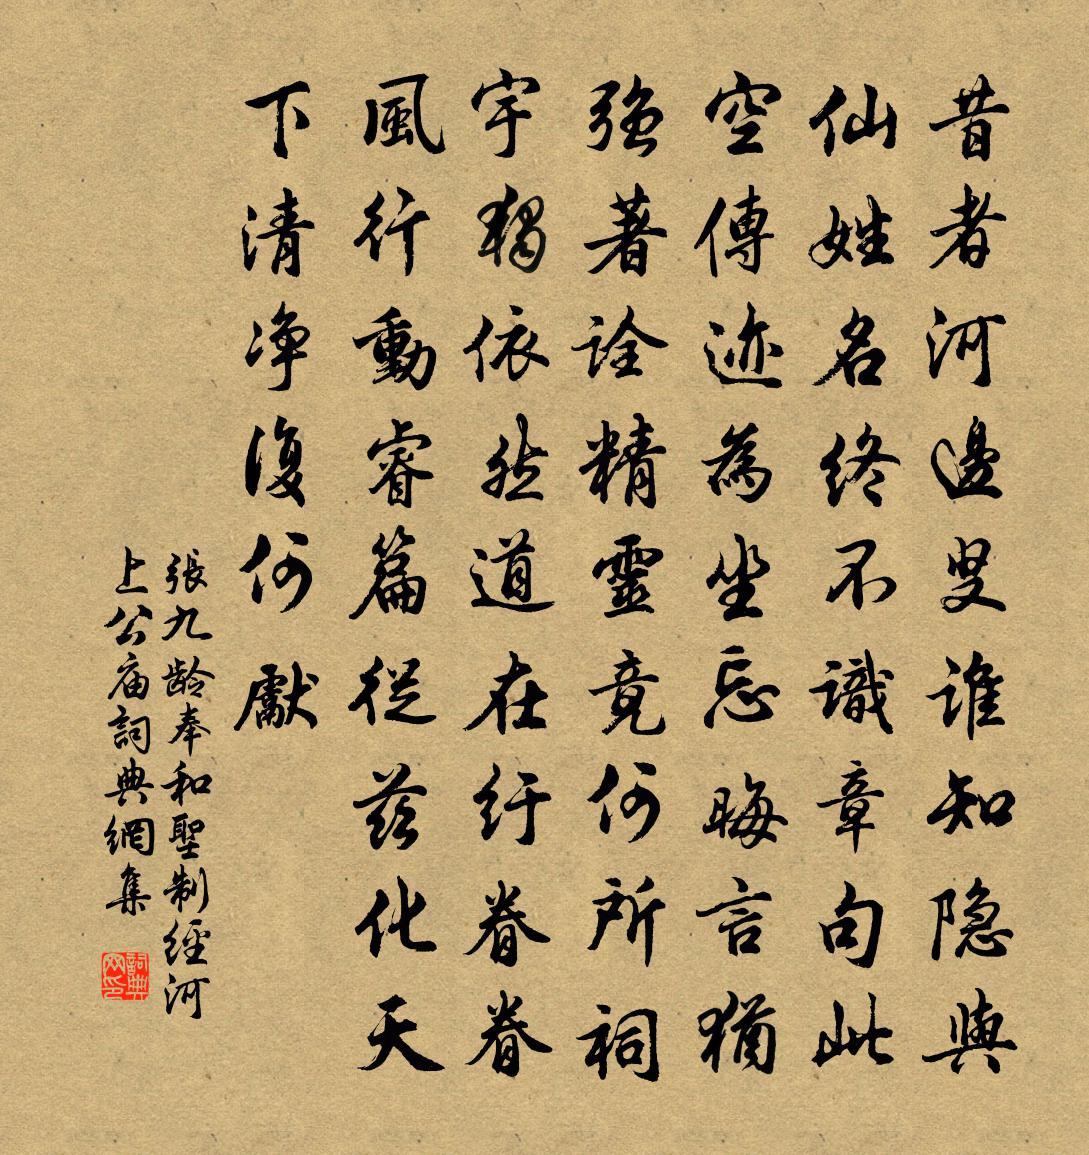 昔者河邊叟誰知隐與
仙姓名終不識章句此
空傳迹為坐忘晦言猶
強著詮精靈竟何所祠
宇獨依然道在紆眷眷
風行動睿篇從兹化天
下清净復何獻
張九龄奉和聖制經河
上公庙詞典網集
詞典网印